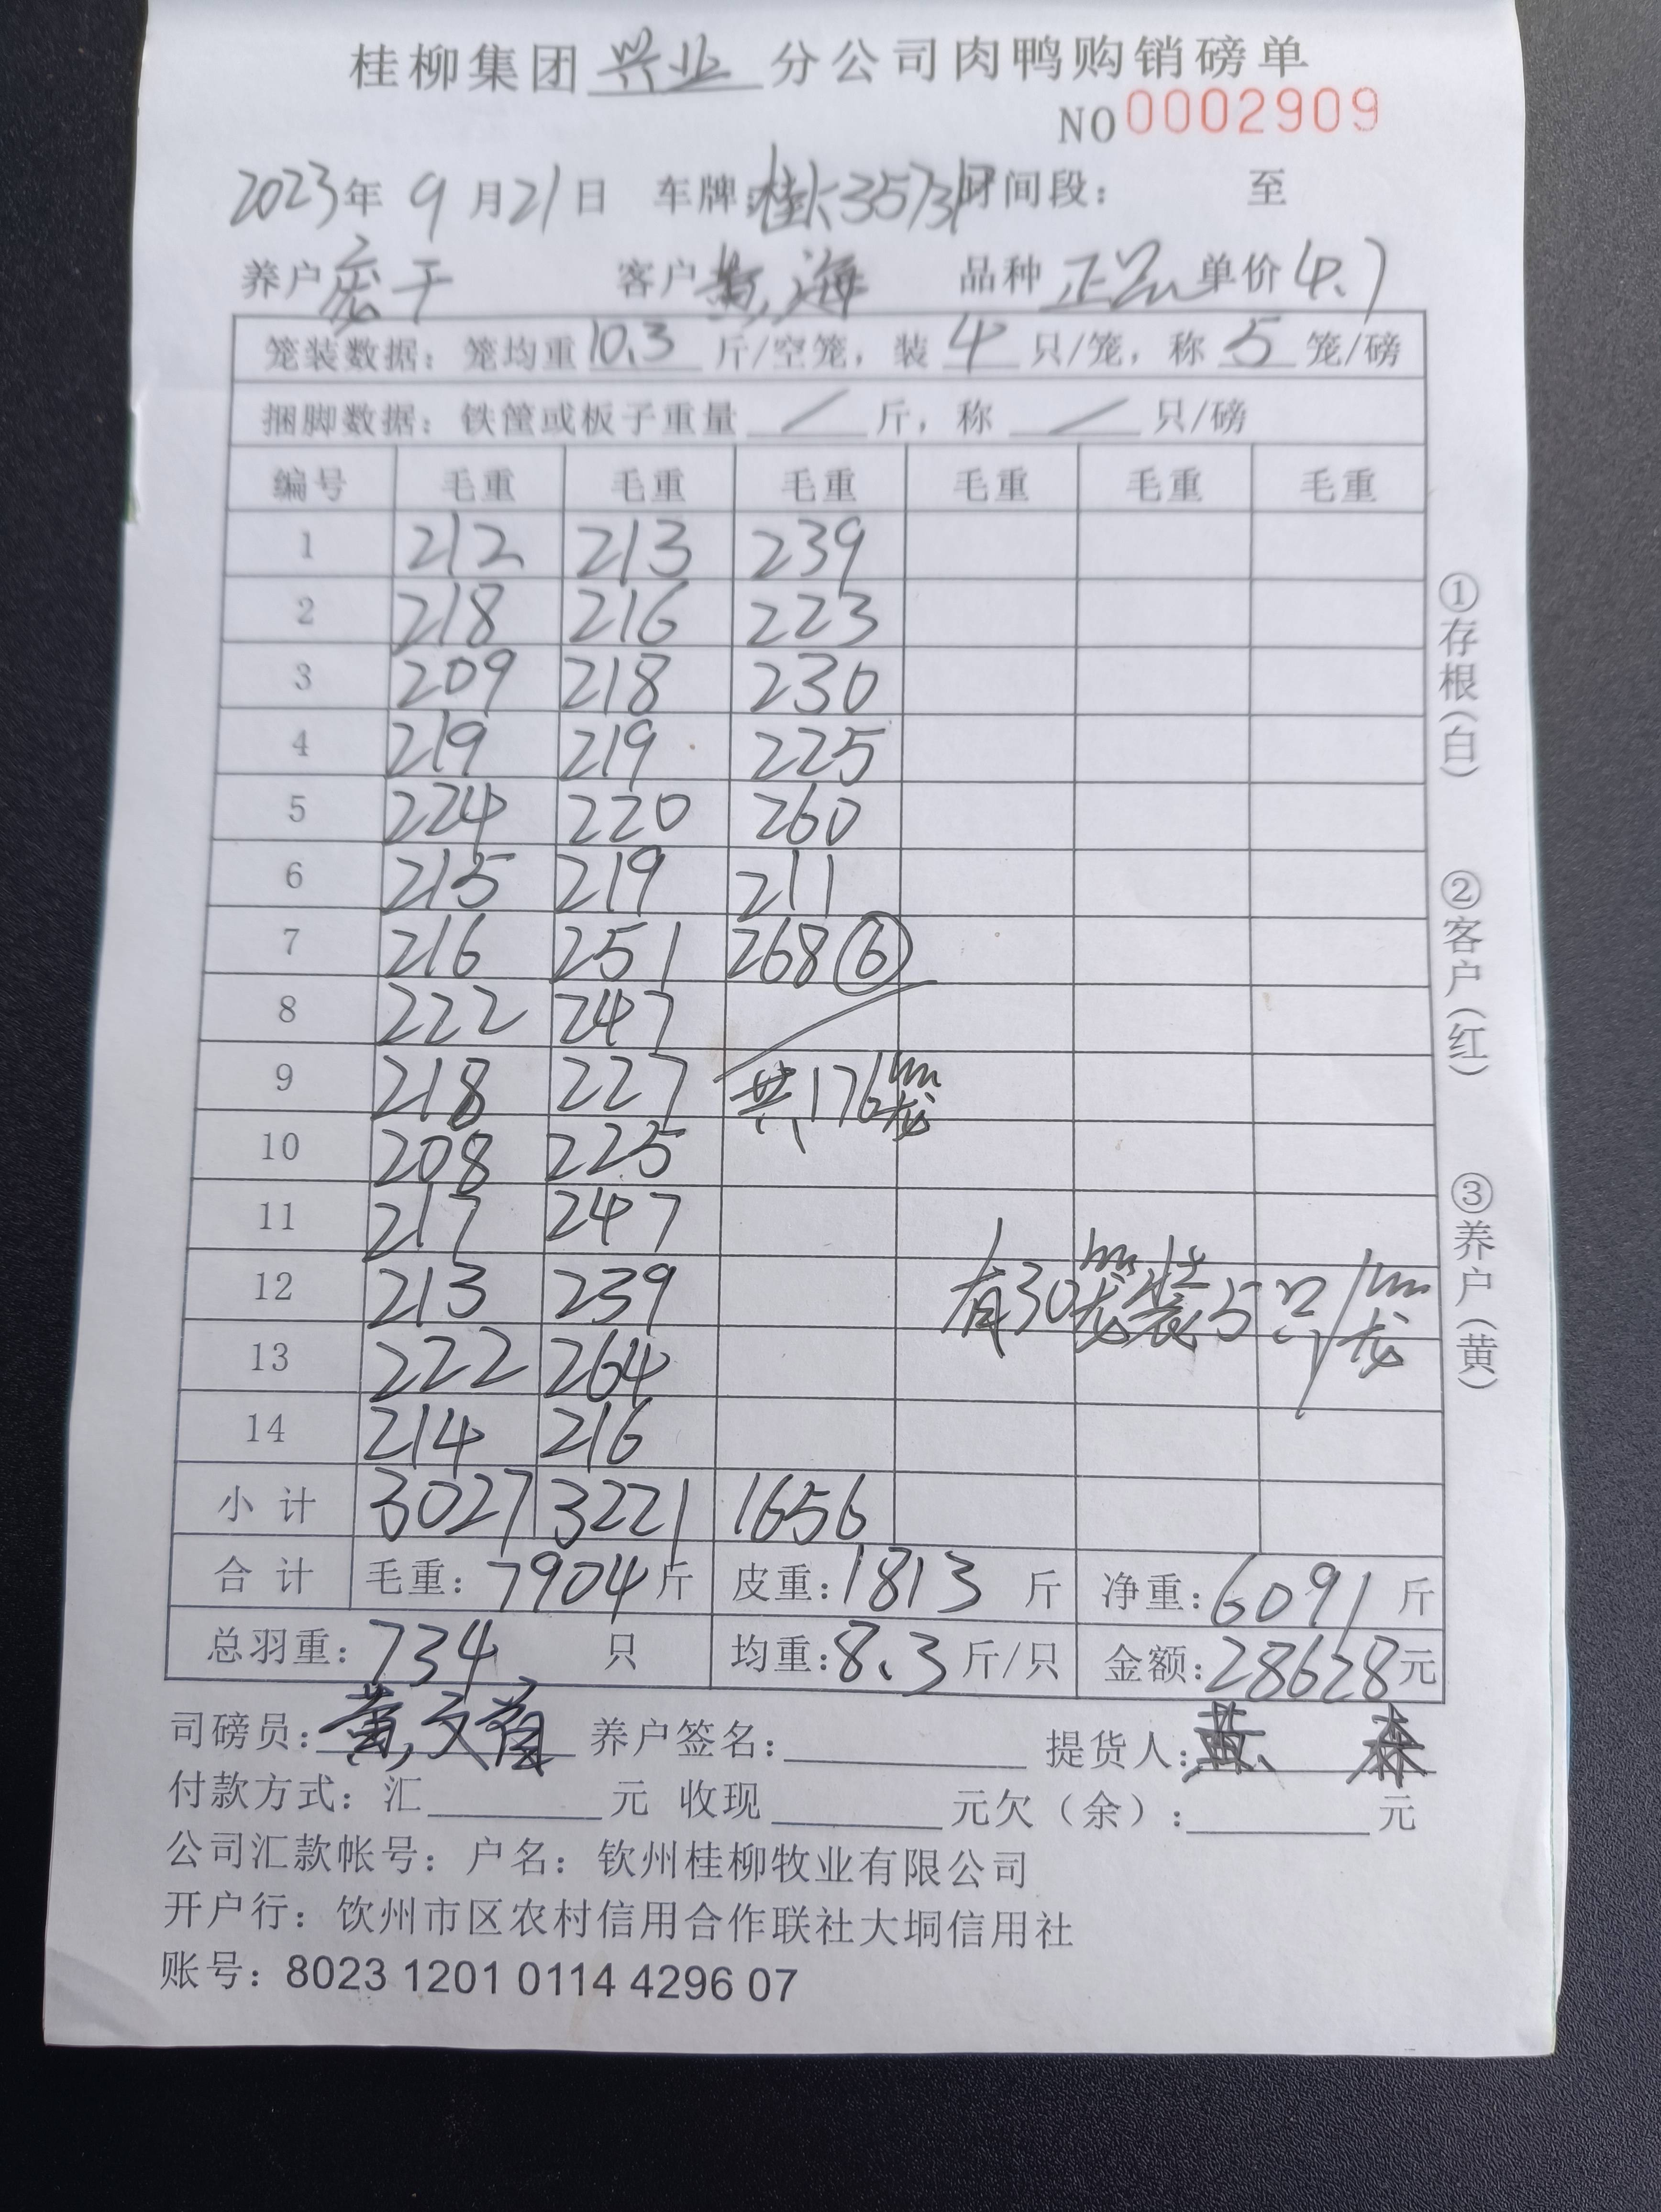 桂柳集团 兴业 分公司肉鸭购销磅单
NO 0002909
2023年 9月21日 车牌: 时间段: 至
养户 客户 黄海 品种 正品 单价 4.7
笼装数据: 笼均重 10.3 斤/空笼, 装 4 只/笼, 称 5 笼/磅
捆脚数据: 铁筐或板子重量 / 斤, 称 / 只/磅
编号 毛重 毛重 毛重 毛重 毛重 毛重
1 212 213 239
2 218 216 223
3 209 218 230
4 219 219 225
5 224 220 260
6 215 219 211
7 216 251 268 ⑥
8 222 247
9 218 227 共176笼
10 208 225
11 217 247
12 213 239 有30笼装5只/笼
13 222 264
14 214 216
小计 3027 3221 1656
合计 毛重: 7904 斤 皮重: 1813 斤 净重: 6091 斤
总羽重: 734 只 均重: 8.3 斤/只 金额: 28628元
司磅员: 养户签名: 提货人: 黄 森
付款方式: 汇 元 收现 元欠(余): 元
公司汇款帐号: 户名: 钦州桂柳牧业有限公司
开户行: 饮州市区农村信用合作联社大垌信用社
账号: 8023 1201 0114 4296 07
①存根(白)
②客户(红)
③养户(黄)